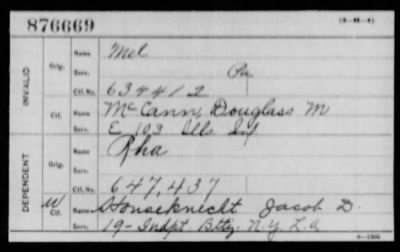 876669
(3—M—4)
INVALID
Orig. Name Mel
Serv. Pa
Ctf. No. 634412
Ctf. Name McCann, Douglass M
Serv. E 103 Ills Inf
DEPENDENT
Orig. Name Rha
Serv.
Ctf. No. 647,437
W
Ctf. Name Houseknecht Jacob D.
Serv. 19 - Indpt. Btty. N.Y. L.a